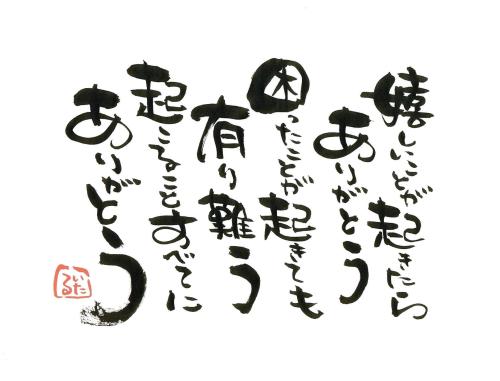 嬉しいことが起きたら
ありがとう
困ったことが起きても
有り難う
起こることすべてに
ありがとう